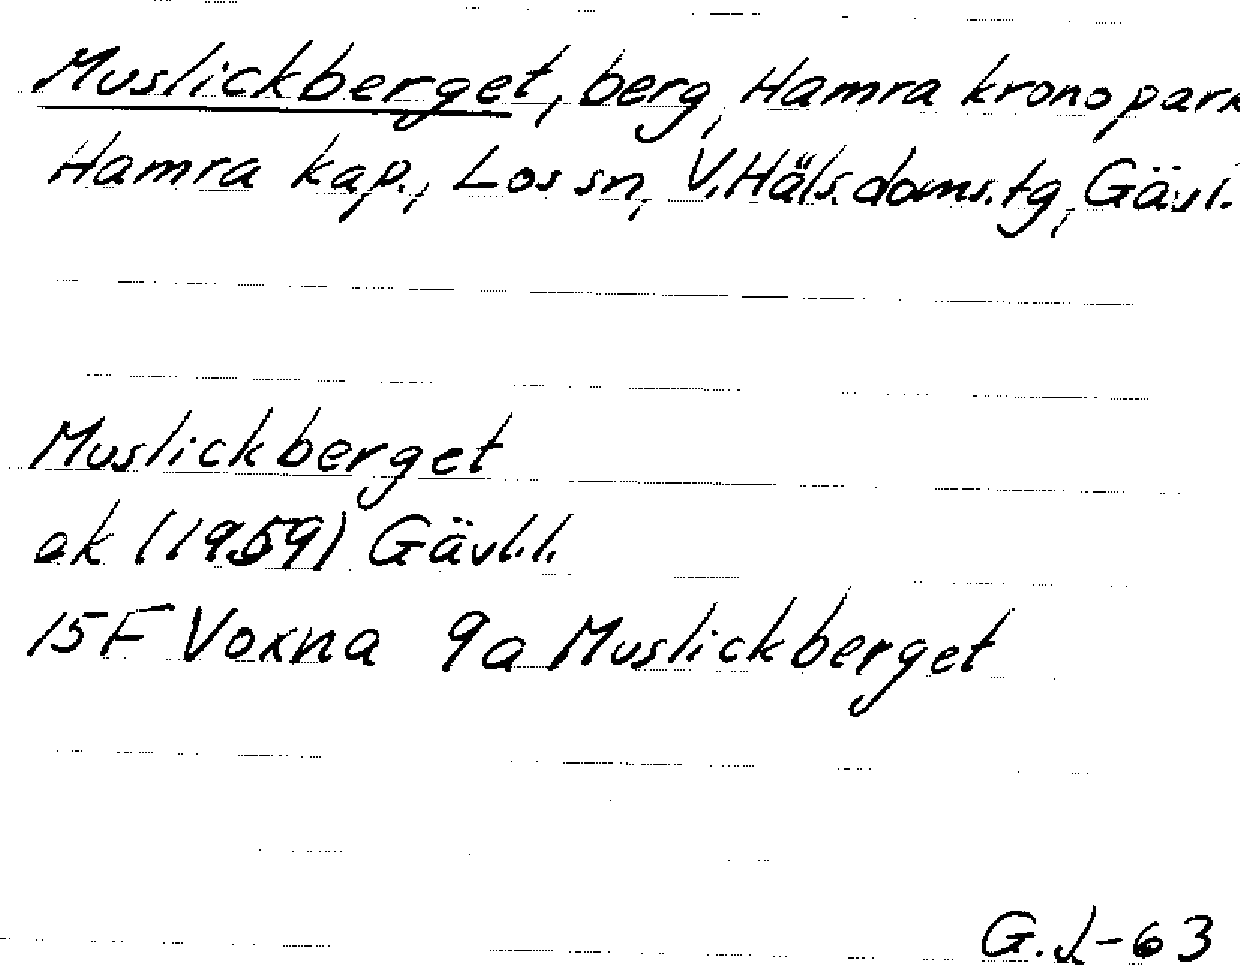 Muslickberget, berg, Hamra kronopark
Hamra kap., Los sn, V. Häls. doms. tg, Gävl.
Muslickberget
ek (1959) Gävl.l.
15F Voxna 9a Muslickberget
G.L-63